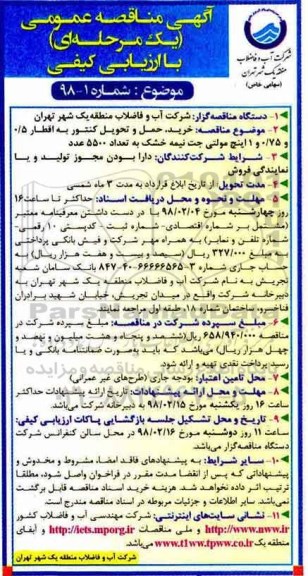 آگهی مناقصه عمومی
(یک مرحله‌ای)
با ارزیابی کیفی
شرکت آب و فاضلاب
منطقه یک شهر تهران
(سهامی خاص)
موضوع : شماره ۱-۹۸
۱- دستگاه مناقصه‌گزار: شرکت آب و فاضلاب منطقه یک شهر تهران
۲- موضوع مناقصه: خرید، حمل و تحویل کنتور به اقطار ۰/۵
و ۰/۷۵ و ۱ اینچ مولتی جت نیمه خشک به تعداد ۵۵۰۰ عدد
۳- شرایط شرکت‌کنندگان: دارا بودن مجوز تولید و یا
نمایندگی فروش
۴- مدت تحویل از تاریخ ابلاغ قرارداد به مدت ۳ ماه شمسی
۵- مهلت و نحوه و محل دریافت اسناد: حداکثر تا ساعت ۱۶
روز چهارشنبه مورخ ۹۸/۰۲/۰۴ با در دست داشتن معرفینامه معتبر
(مشتمل بر شماره اقتصادی- شماره ثبت- کدپستی ۱۰ رقمی-
شماره تلفن و نمابر) به همراه مهر شرکت و فیش بانکی پرداختی
به مبلغ ۳۲۷/۰۰۰ ریال (سیصد و بیست و هفت هزار ریال) به
حساب جاری شماره ۳-۸۴۷-۴۰-۶۶۶۶۶۵۶۵ بانک سامان شعبه
تجریش به نام شرکت آب و فاضلاب منطقه یک شهر تهران به
دبیرخانه شرکت واقع در میدان تجریش، خیابان شهید برادران
فناخسرو، ساختمان شماره ۱، طبقه اول مراجعه نمایند.
۶- مبلغ سپرده شرکت در مناقصه: مبلغ سپرده شرکت در
مناقصه ۶۵۸/۰۴۰/۰۰۰ ریال (ششصد و پنجاه و هشت میلیون و
چهل هزار ریال) می‌باشد که باید بصورت ضمانتنامه بانکی و یا
رسید پرداخت نقدی تهیه و ارائه شود.
۷- محل تامین اعتبار: بودجه جاری (طرح‌های غیر عمرانی)
۸- مهلت و محل ارائه پیشنهادات: تاریخ ارائه پیشنهادات حداکثر
ساعت ۱۶ روز یکشنبه مورخ ۹۸/۰۲/۱۵ به دبیرخانه شرکت می‌باشد.
۹- تاریخ و محل تشکیل جلسه بازگشایی پاکات ارزیابی کیفی:
ساعت ۱۱ روز دوشنبه مورخ ۹۸/۰۲/۱۶ در محل سالن کنفرانس شرکت
دستگاه مناقصه‌گزار می‌باشد.
۱۰- سایر شرایط: به پیشنهادهای فاقد امضاء، مشروط و مخدوش و
پیشنهاداتی که پس از انقضا مدت مقرر در فراخوان واصل شود، مطلقا
ترتیب اثر داده نخواهد شد. هزینه خرید اسناد مناقصه قابل برگشت
نمی‌باشد. سایر اطلاعات و جزئیات مربوطه در اسناد مناقصه مندرج است
۱۱- نشانی سایت‌های اینترنتی: شرکت مهندسی آب و فاضلاب کشور
http://www.nww.ir و ملی مناقصات http://iets.mporg.ir و آبفای
منطقه یک www.t1ww.tpww.co.ir می‌باشد.
شرکت آب و فاضلاب منطقه یک شهر تهران